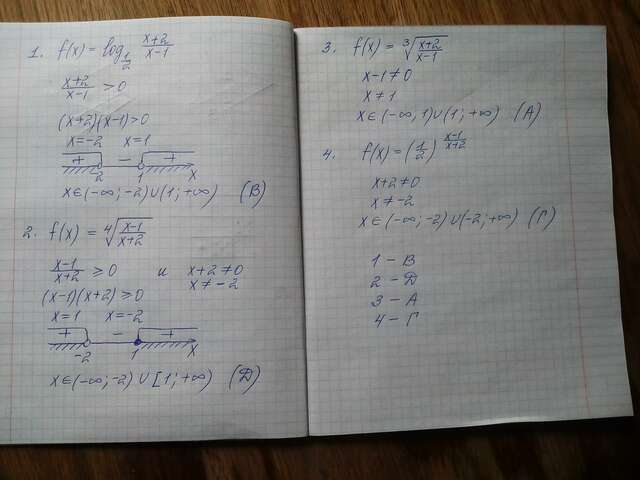 1. f(x) = log_{1/2} (x+2)/(x-1)
(x+2)/(x-1) > 0
(x+2)(x-1)>0
x=-2 x=1
+ - +
-2 1 x
x∈(-∞;-2)∪(1;+∞) (В)
2. f(x) = ⁴√((x-1)/(x+2))
(x-1)/(x+2) ≥ 0 и x+2≠0
x≠-2
(x-1)(x+2)≥0
x=1 x=-2
+ - +
-2 1 x
x∈(-∞;-2)∪[1;+∞) (Д)
3. f(x) = ³√((x+2)/(x-1))
x-1≠0
x≠1
x∈(-∞;1)∪(1;+∞) (А)
4. f(x) = (1/2)^((x-1)/(x+2))
x+2≠0
x≠-2
x∈(-∞;-2)∪(-2;+∞) (Г)
1 – В
2 – Д
3 – А
4 – Г